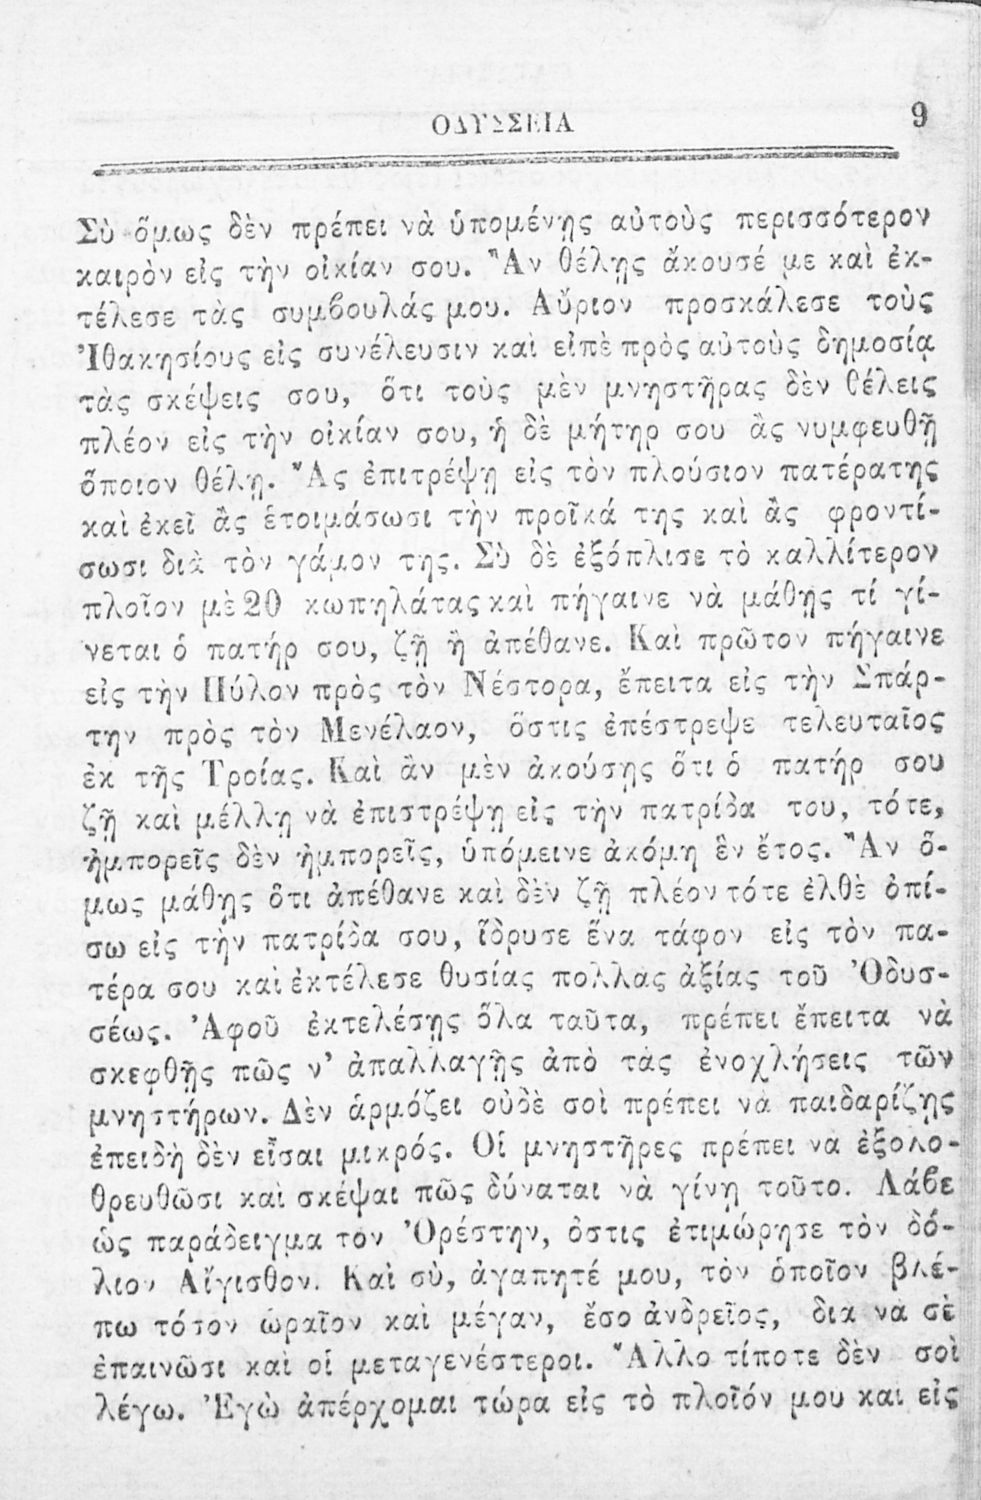 ΟΔΥΣΣΕΙΑ 9
Σὺ ὅμως δὲν πρέπει νὰ ὑπομένῃς αὐτοὺς περισσότερον
καιρὸν εἰς τὴν οἰκίαν σου. Ἂν θέλῃς ἄκουσέ με καὶ ἐκ-
τέλεσε τὰς συμβουλάς μου. Αὔριον προσκάλεσε τοὺς
Ἰθακησίους εἰς συνέλευσιν καὶ εἰπὲ πρὸς αὐτοὺς δημοσίᾳ
τὰς σκέψεις σου, ὅτι τοὺς μὲν μνηστῆρας δὲν θέλεις
πλέον εἰς τὴν οἰκίαν σου, ἡ δὲ μήτηρ σου ἂς νυμφευθῇ
ὅποιον θέλῃ. Ἂς ἐπιτρέψῃ εἰς τὸν πλούσιον πατέρατης
καὶ ἐκεῖ ἂς ἑτοιμάσωσι τὴν προῖκά της καὶ ἂς φροντί-
σωσι διὰ τὸν γάμον της. Σὺ δὲ ἐξόπλισε τὸ καλλίτερον
πλοῖον μὲ 20 κωπηλάτας καὶ πήγαινε νὰ μάθῃς τί γί-
νεται ὁ πατήρ σου, ζῇ ἢ ἀπέθανε. Καὶ πρῶτον πήγαινε
εἰς τὴν Πύλον πρὸς τὸν Νέστορα, ἔπειτα εἰς τὴν Σπάρ-
την πρὸς τὸν Μενέλαον, ὅστις ἐπέστρεψε τελευταῖος
ἐκ τῆς Τροίας. Καὶ ἂν μὲν ἀκούσῃς ὅτι ὁ πατήρ σου
ζῇ καὶ μέλλῃ νὰ ἐπιστρέψῃ εἰς τὴν πατρίδα του, τότε,
ἠμπορεῖς δὲν ἠμπορεῖς, ὑπόμεινε ἀκόμη ἓν ἔτος. Ἂν ὅ-
μως μάθῃς ὅτι ἀπέθανε καὶ δὲν ζῇ πλέον τότε ἐλθὲ ὀπί-
σω εἰς τὴν πατρίδα σου, ἵδρυσε ἕνα τάφον εἰς τὸν πα-
τέρα σου καὶ ἐκτέλεσε θυσίας πολλὰς ἀξίας τοῦ Ὀδυσ-
σέως. Ἀφοῦ ἐκτελέσῃς ὅλα ταῦτα, πρέπει ἔπειτα νὰ
σκεφθῇς πῶς ν' ἀπαλλαγῇς ἀπὸ τὰς ἐνοχλήσεις τῶν
μνηστήρων. Δὲν ἁρμόζει οὐδὲ σοὶ πρέπει νὰ παιδαρίζῃς
ἐπειδὴ δὲν εἶσαι μικρός. Οἱ μνηστῆρες πρέπει νὰ ἐξολο-
θρευθῶσι καὶ σκέψαι πῶς δύναται νὰ γίνῃ τοῦτο. Λάβε
ὡς παράδειγμα τὸν Ὀρέστην, ὅστις ἐτιμώρησε τὸν δό-
λιον Αἴγισθον. Καὶ σὺ, ἀγαπητέ μου, τὸν ὁποῖον βλέ-
πω τόσον ὡραῖον καὶ μέγαν, ἔσο ἀνδρεῖος, διὰ νὰ σὲ
ἐπαινῶσι καὶ οἱ μεταγενέστεροι. Ἄλλο τίποτε δὲν σοὶ
λέγω. Ἐγὼ ἀπέρχομαι τώρα εἰς τὸ πλοῖόν μου καὶ εἰς